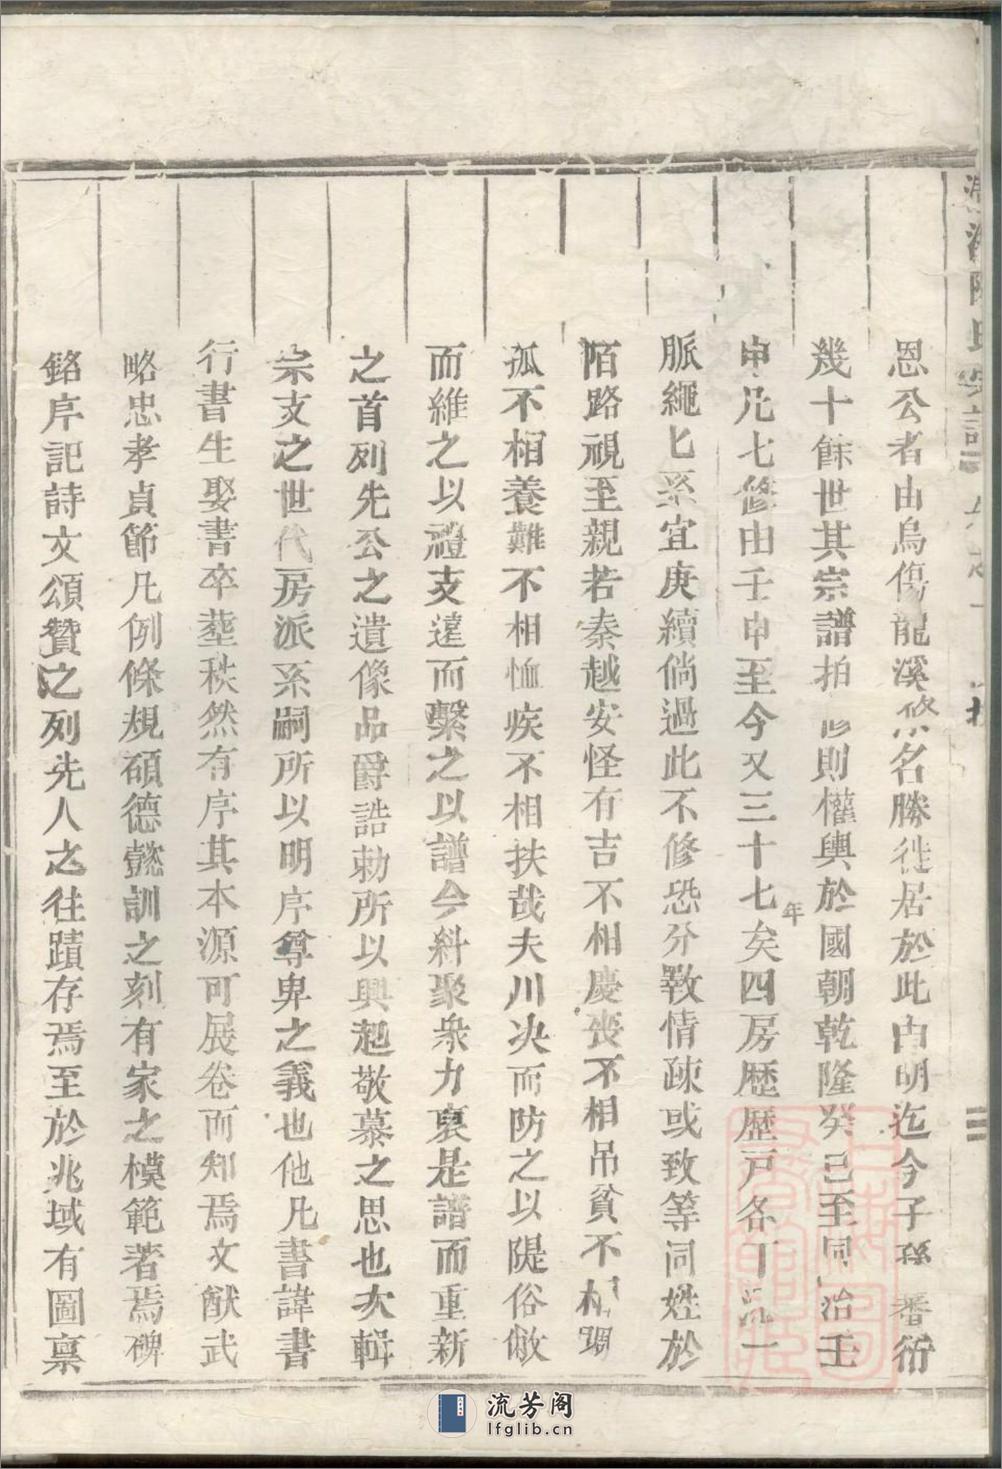 陳氏宗譜
恩公者由烏傷龍溪名勝徙居於此由明迄今子孫番衍
幾十餘世其宗譜拍修則權輿於國朝乾隆癸巳至同治壬
申凡七修由壬申至今又三十七年矣四房歷歷戶各丁一
脈繩匕系宜庚續倘過此不修恐分斁情疎或致等同姓於
陌路視至親若秦越安怪有吉不相慶喪不相吊貧不相賙
孤不相養難不相恤疾不相扶哉夫川决而防之以隄俗敝
而維之以禮支遠而繫之以譜今糾聚衆力裒是譜而重新
之首列先公之遺像品爵誥勅所以興起敬慕之思也次輯
宗支之世代房派系嗣所以明序尊卑之義也他凡書諱書
行書生娶書卒塟秩然有序其本源可展卷而知焉文猷武
略忠孝貞節凡例條規碩德懿訓之刻有家之模範著焉碑
銘序記詩文頌贊之列先人之往蹟存焉至於兆域有圖禀
流芳阁
lfglib.cn